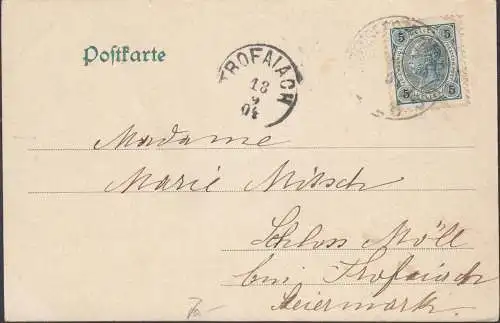 Postkarte
TROFAIACH
18
9
04
5 5
5 5
Madame
Marie Mitsch
Schloss Möll
bei Trofaiach
Steiermark.